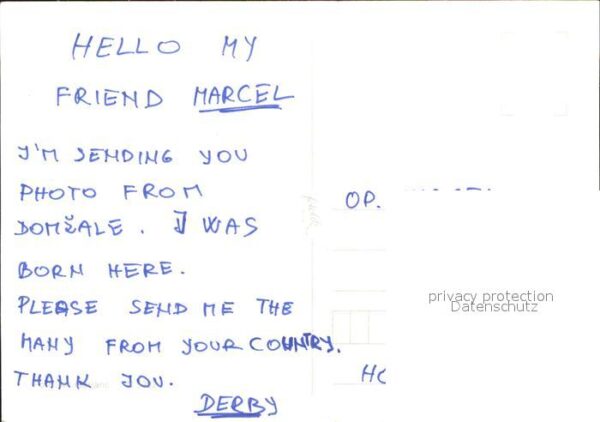 HELLO MY
FRIEND MARCEL
I'M SENDING YOU
PHOTO FROM
DOMŽALE. I WAS
BORN HERE.
PLEASE SEND ME THE
MANY FROM YOUR COUNTRY.
THANK YOU.
DERBY
OP.
privacy protection
Datenschutz
HO